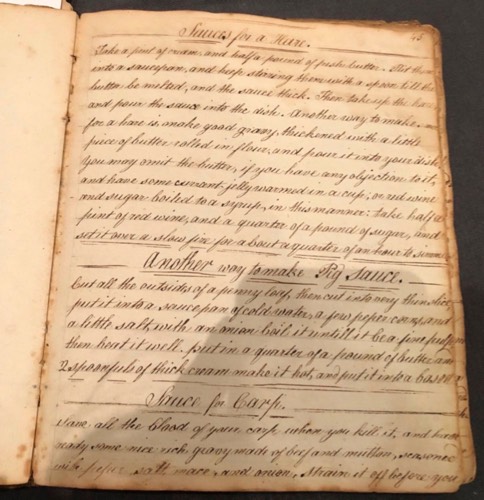 Sauces for a Hare.
45
Take a pint of cream, and half a pound of fresh butter. Put them
into a saucepan, and keep stiring them with a spoon till the
butter be melted, and the sauce thick. Then take up the hare
and pour the sauce into the dish. Another way to make
for a hare is, make good gravy, thickened with a little
piece of butter rolled in flour, and pour it into your dish
You may omit the butter, if you have any objection to it,
and have some currant jelly warmed in a cup, or red wine
and sugar boiled to a syrup, in this manner: take half a
pint of red wine, and a quarter of a pound of sugar, and
set it over a slow fire for about a quarter of an hour to simmer
Another way to make Pig Sauce.
Cut all the outsides of a penny loaf, then cut into very thin slices
put it into a saucepan of cold water, a few peper corns, and
a little salt, with an onion boil it untill it be a fine
then beat it well. put in a quarter of a pound of butter and
2 spoonfuls of thick cream make it hot, and put it into a bason
Sauce for Carp.
Save all the Blood of your carp when you kill it, and have
ready some nice rich gravy made of beef and mutton, seasoned
with peper, salt, mace, and onion, strain it off before you